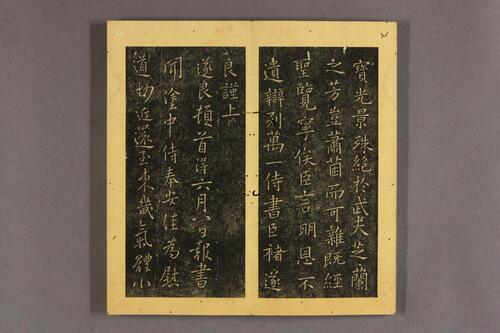 寶光景殊絕於武夫芝蘭
之芳豈蕭茵而可雜既經
聖覽寧俟臣言明恩不
遺辯列萬一侍書臣褚遂
良謹上
遂良頓首得六月八日報書
聞塗中侍奉安佳為慰
道初近還至東畿氣體小